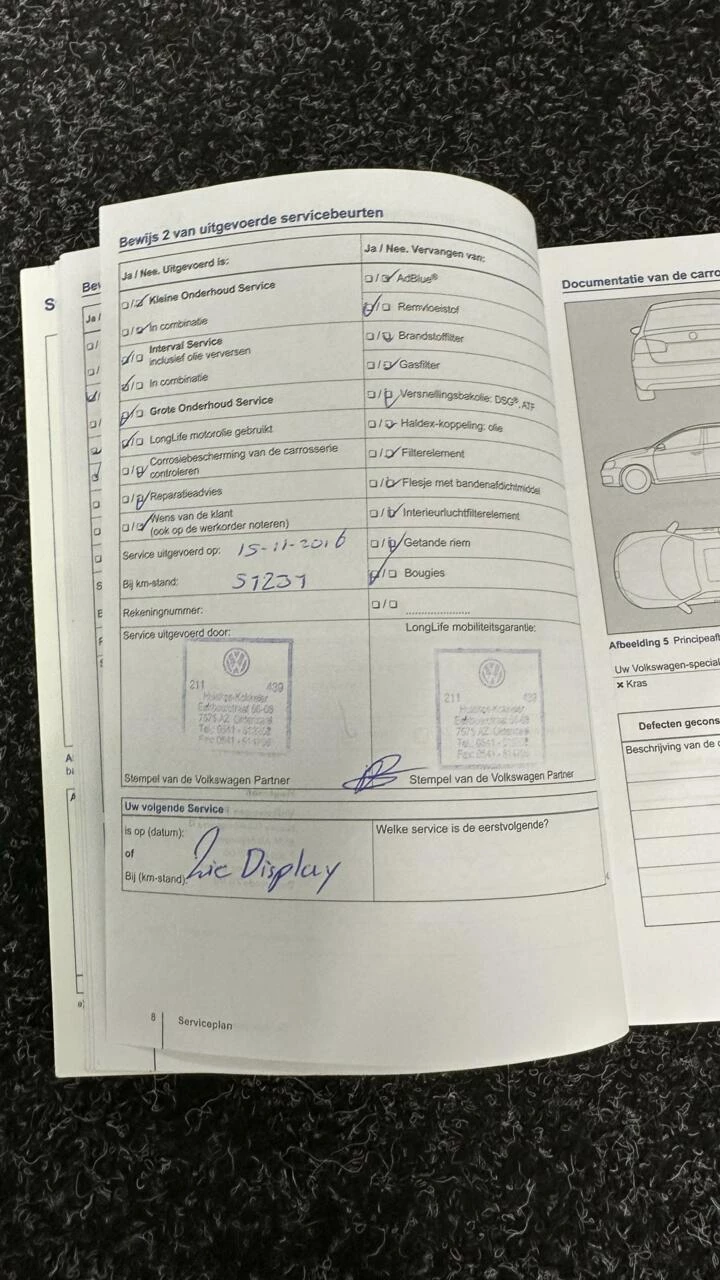 Bewijs 2 van uitgevoerde servicebeurten
Ja / Nee. Uitgevoerd is:
Kleine Onderhoud Service
In combinatie
Interval Service
inclusief olie verversen
In combinatie
Grote Onderhoud Service
LongLife motorolie gebruikt
Corrosiebescherming van de carrosserie
controleren
Reparatieadvies
Wens van de klant
(ook op de werkorder noteren)
Service uitgevoerd op: 15-11-2016
Bij km-stand: 51231
Rekeningnummer:
Service uitgevoerd door:
211 439
Stempel van de Volkswagen Partner
Ja / Nee. Vervangen van:
AdBlue®
Remvloeistof
Brandstoffilter
Gasfilter
Versnellingsbakolie: DSG®, ATF
Haldex-koppeling: olie
Filterelement
Flesje met bandenafdichtmiddel
Interieurluchtfilterelement
Getande riem
Bougies
LongLife mobiliteitsgarantie:
211 439
Stempel van de Volkswagen Partner
Uw volgende Service
is op (datum):
of
Bij (km-stand):
Zie Display
Welke service is de eerstvolgende?
8 Serviceplan
Documentatie van de carro
Afbeelding 5 Principeaf
Uw Volkswagen-special
× Kras
Defecten gecons
Beschrijving van de